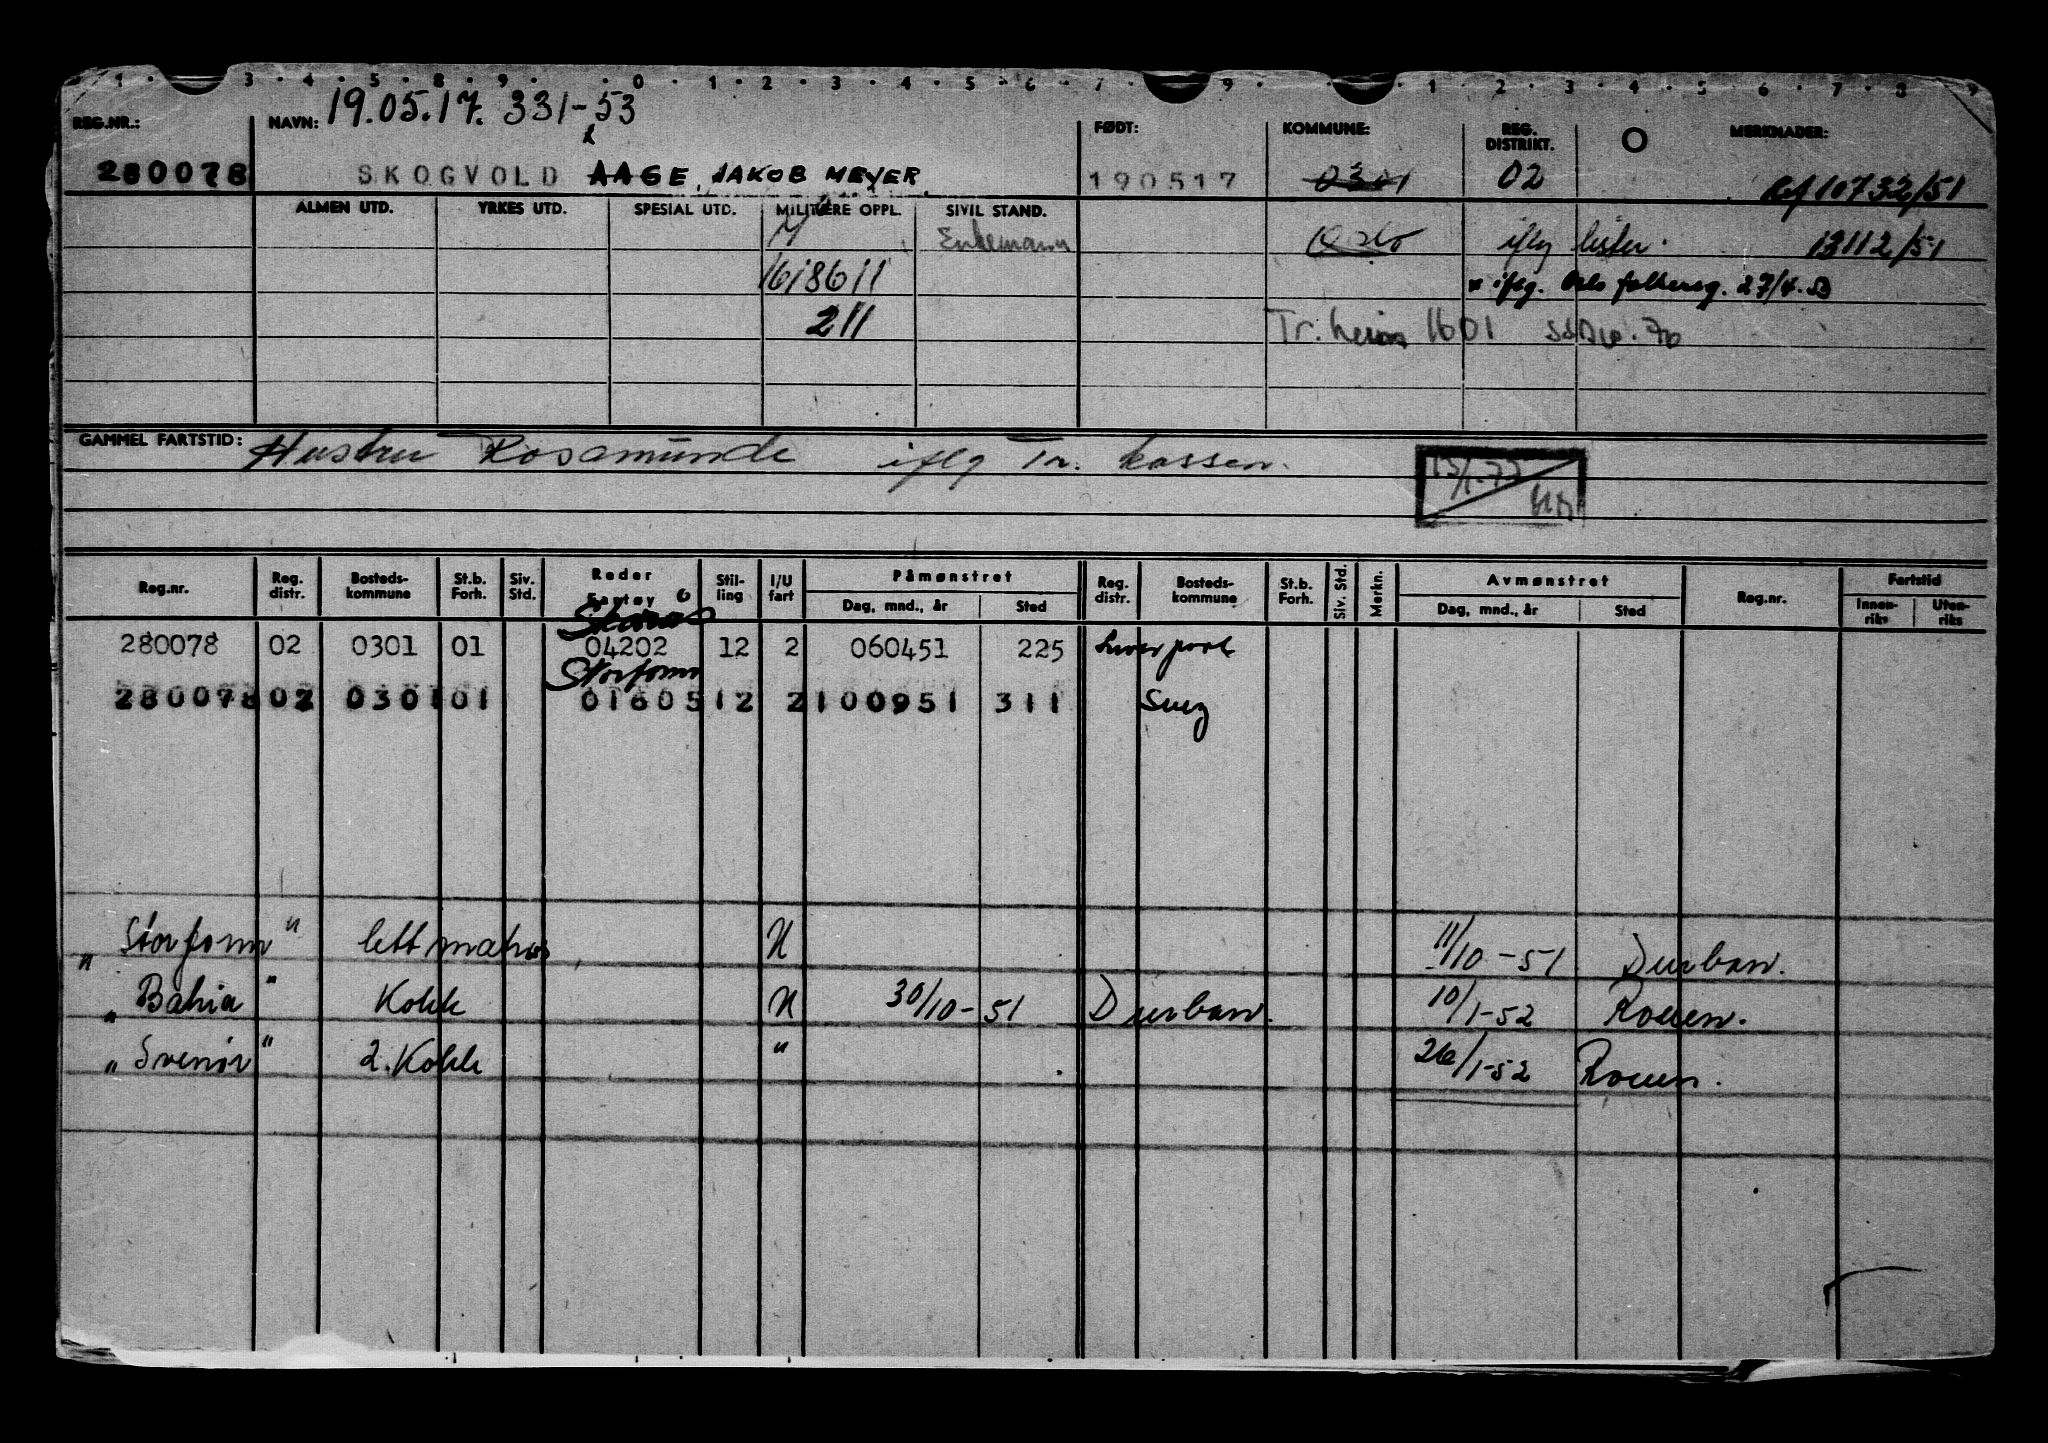 1 · 3 · 4 · 5 · 8 · 9 · 0 · 1 · 2 · 3 · 4 · 5 · 6 · 7 · 9 · 1 · 2 · 3 · 4 · 5 · 6 · 7 · 8 · 9
19.05.17. 331-53
REG.NR.: NAVN: FØDT: KOMMUNE: REG. DISTRIKT. O MERKNADER:
280078 SKOGVOLD AAGE JAKOB MEYER. 190517 0301 02 10732/51
ALMEN UTD. YRKES UTD. SPESIAL UTD. MILITÆRE OPPL. SIVIL STAND.
Enkemann Oslo iflg lister. 13112/51
16/8611 * iflg. Oslo folkereg. 27/4.53
211 Tr.heim 1601
GAMMEL FARTSTID: Hustru Rosamunde iflg Tr. kassen.
15/1-75
Reg.nr. Reg. distr. Bosteds-kommune St.b. Forh. Siv. Std. Reder Fartøy Stil-ling I/U fart Påmønstret Dag, mnd., år Sted Reg. distr. Bosteds-kommune St.b. Forh. Siv. Std. Merkn. Avmønstret Dag, mnd., år Sted Reg.nr. Fartstid Innen-riks Uten-riks
280078 02 0301 01 04202 12 2 060451 225 Liverpool
Storfonn
280078 02 0301 01 01605 12 2 100951 311 Suez
"Storfonn" lettmatros U 11/10-51 Durban.
"Bahia" Kokk U 30/10-51 Durban. 10/1-52 Rouen.
"Svenør" 2. Kokk " 26/1-52 Rouen.